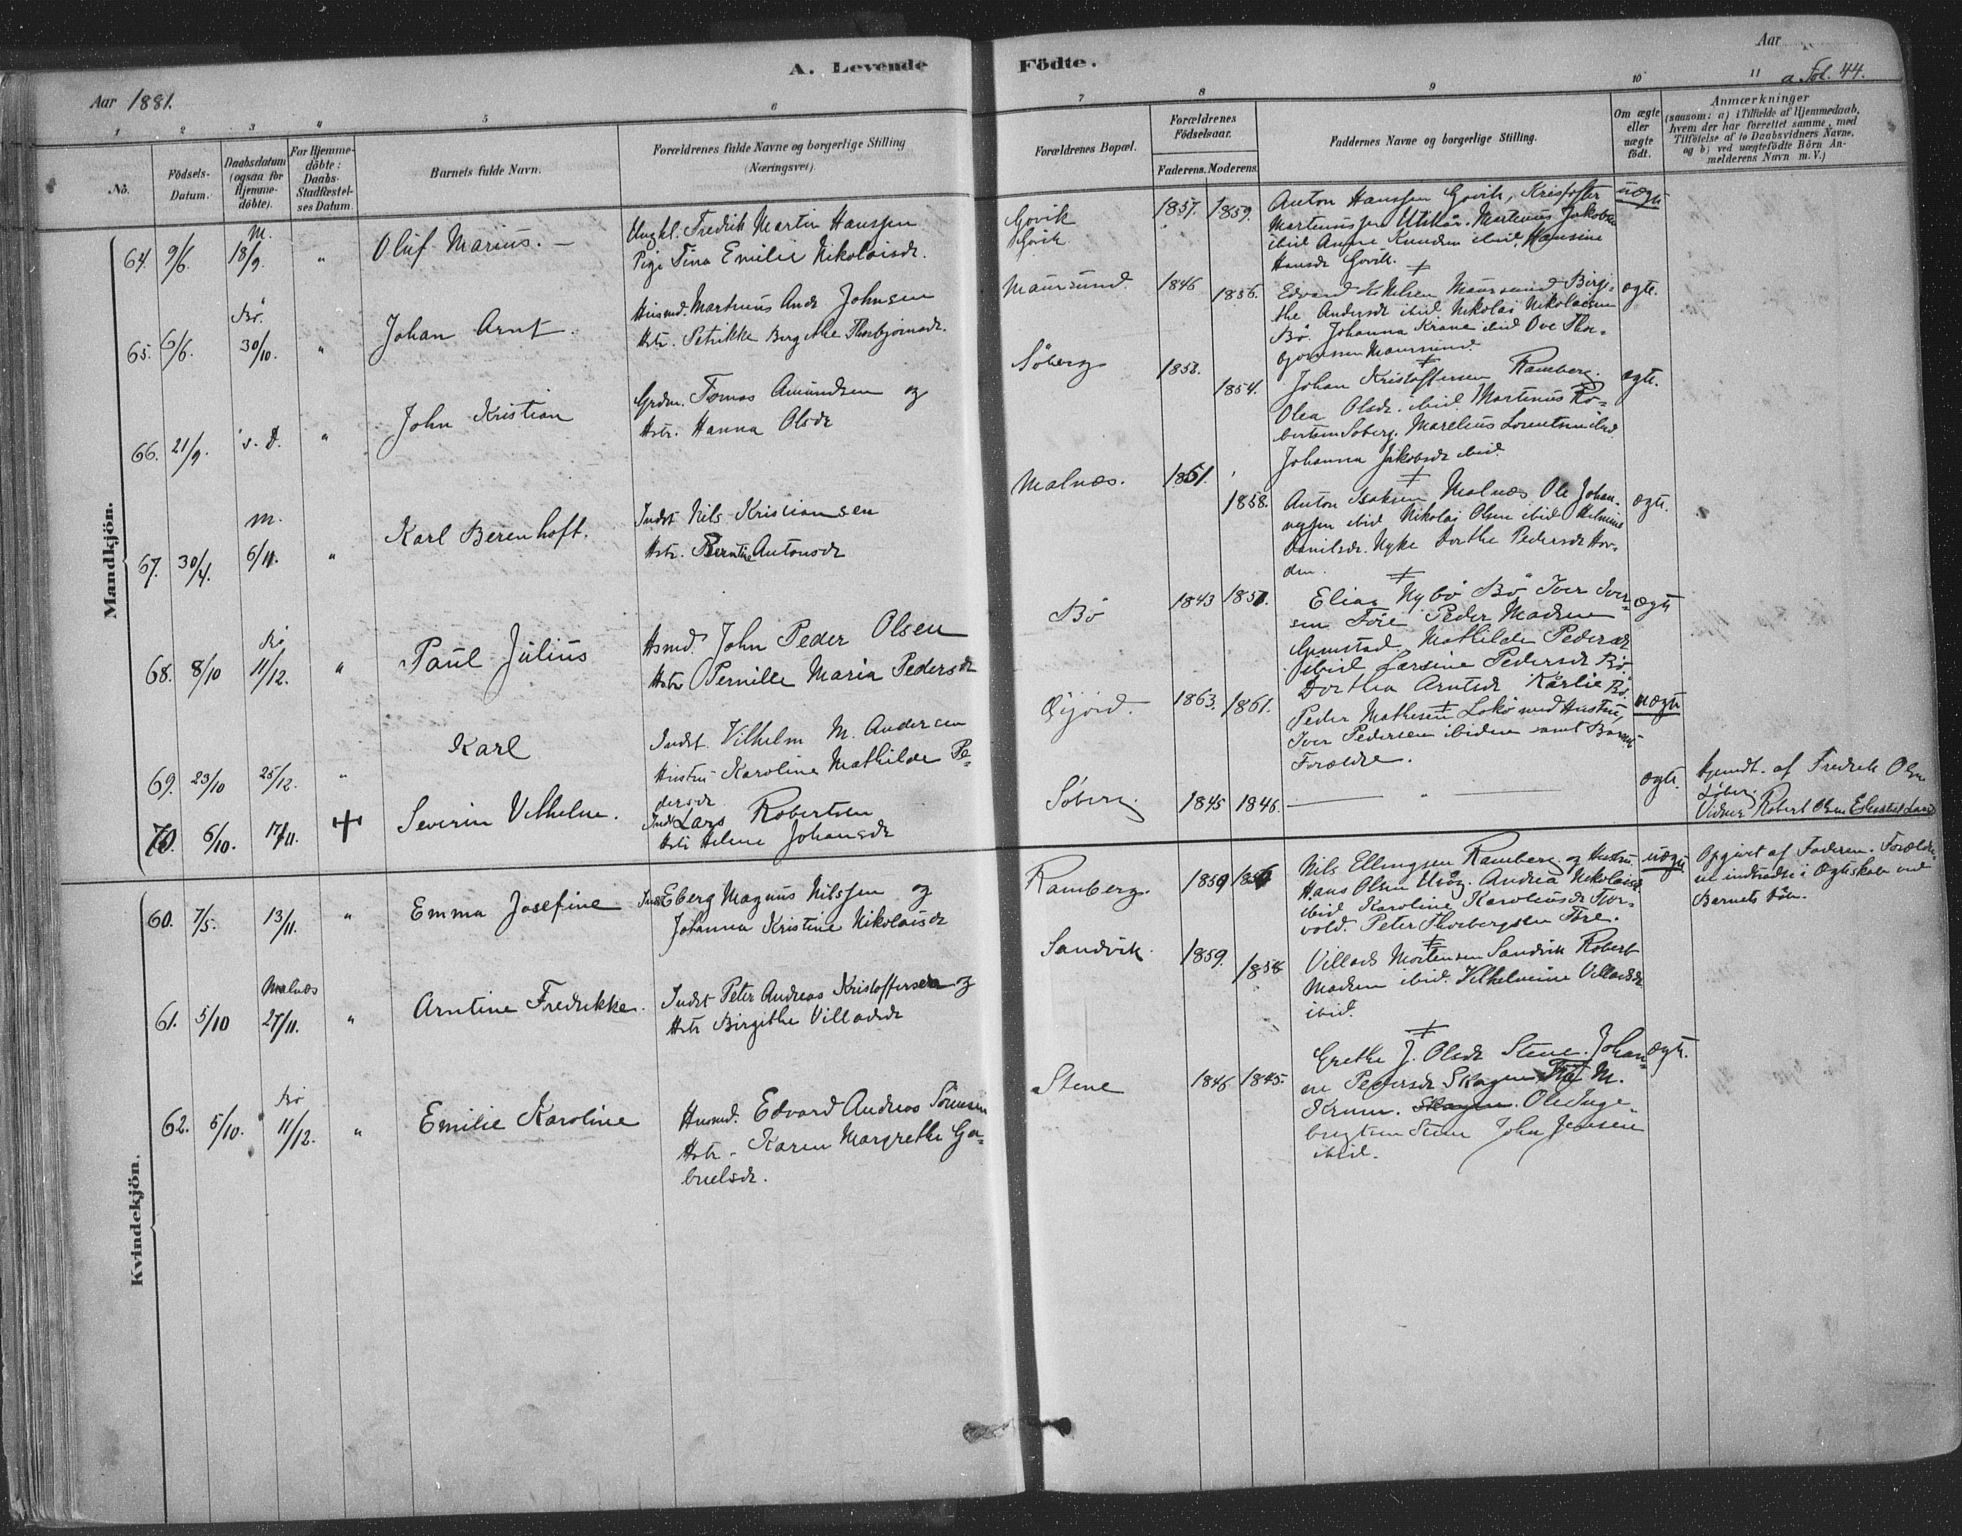 A. Levende Födte.
Aar 1881.
Aar
a Fol. 44.
1 2 3 4 5 6 7 8 9 10 11
No.
Födsels-Datum.
Daabsdatum (ogsaa for Hjemme-döbte).
For Hjemme-döbte: Daabs-Stadfæstel-ses Datum
Barnets fulde Navn.
Forældrenes fulde Navne og borgerlige Stilling
(Næringsvei).
Forældrenes Bopæl.
Forældrenes Födselsaar.
Faderens. Moderens.
Faddernes Navne og borgerlige Stilling.
Om ægte eller uægte födt.
Anmærkninger
(saasom: a) i Tilfælde af Hjemmedaab,
hvem der har forrettet samme, med
Tilföielse af to Daabsvidners Navne,
og b) ved uægtefödte Börn An-
melderens Navn m. V.)
Mandkjön.
64. 9/6. M. 18/9. " Oluf Marius. —
Ungkl. Fredrik Martin Hanssen
Pige Tina Emilie Nikolaisdr.
Govik
Govik
1857. 1859.
Anton Hanssen Govik, Kristoffer
Hansdr Govik.
uægte
65. 6/6. Bø. 30/10. " Johan Arnt.
Husmd. Martinus Andr Johnsen
Hstr. Petrikke Bergithe Thorbjørnsdr.
Maursund.
1846 1856.
Edvard Nilsen Maursund Birgi-
the Andersdr ibid Nikolai Nikolaisen
Bø. Johanna Krane ibid Ove Thor-
bjørnsen Maursund.
ægte.
66. 21/9. s. D. " John Kristian
Grdm. Tomas Amundsen og
Hstr. Hanna Olsdr
Søberg
1858. 1854.
Johan Kristoffersen Ramberg.
Olea Olsdr. ibid Martinus Ro-
bertsen Søberg. Marelius Lorentsen ibid
Johanna Jakobsdr ibid.
ægte.
67. 30/4. M. 6/11. " Karl Berenhoft.
Indst Nils Kristiansen
Hstr. Berntine Antonsdr
Malnæs.
1861. 1858.
Anton Isaksen Malnæs Ole Johan-
nessen ibid Nikolai Olsen ibid Helmine
Danielsdr. Nyke Dorthe Pedersdr Hov-
den.
ægte.
68. 8/10 Bø 11/12. " Paul Julius
Hsmd. John Peder Olsen
Hstr Pernille Maria Pedersdr
Bø
1843 1857.
Elias Nybø Bø Iver Iver-
sen Føre Peder Madsen
Grimstad. Mathilde Pedersdr
ibid Larsine Pedersdr Bø
ægte
69. 23/10 25/12. " Karl
Indst. Vilhelm M. Andersen
Hustru Karoline Mathilde Pe-
dersdr
Gijord.
1863. 1861.
Dorthea Arntsdr Kårlie Bø.
Peder Mathisen Lokø med Hustru,
Iver Pedersen ibidem samt Barnets
Forældre.
uægte
70. 6/10. 17/11. + Severin Vilhelm.
Indst Lars Robertsen
Hstr Helene Johansdr
Søberg.
1845 1846. — " —
ægte.
Hjemdt. af Fredrik Olsen
Søberg.
Vidner Robert Olsen
Kvindekjön.
60. 7/5. 13/11. " Emma Josefine
Inds Eberg Magnus Nilssen og
Johanna Kristine Nikolaisdr
Ramberg.
1859
Nils Ellingsen Ramberg. og Hustru.
Hans Olsen Uvåg. Andrea Nikolaisd
ibid Karoline Karoliusdr Fjær-
vold. Peter Thorbergsen Føre.
uægte
Opgivet af Faderen. Forældre-
ne indtrådte i Ægteskab ved
Barnets Dåb.
61. 5/10 Malnæs 27/11. " Arntine Fredrikke.
Indst Peter Andreas Kristoffersen og
Hstr Birgithe Villadsdr
Sandvik.
1859. 1858
Villads Mortensen Sandvik Robert
Madsen ibid. Vilhelmine Villadsdr
ibid.
62. 5/10. Bø 11/12. " Emilie Karoline
Husmd. Edvard Andreas Sörensen
Hstr. Karen Margrethe Ga-
brielsdr.
Stene
1846 1845.
Grethe J. Olsdr Stene. Johan-
ne Pedersdr Skagen M.
Krum. Skagen. Ole Inge-
brigtsen Stene John Jensen
ibid.
ægte.